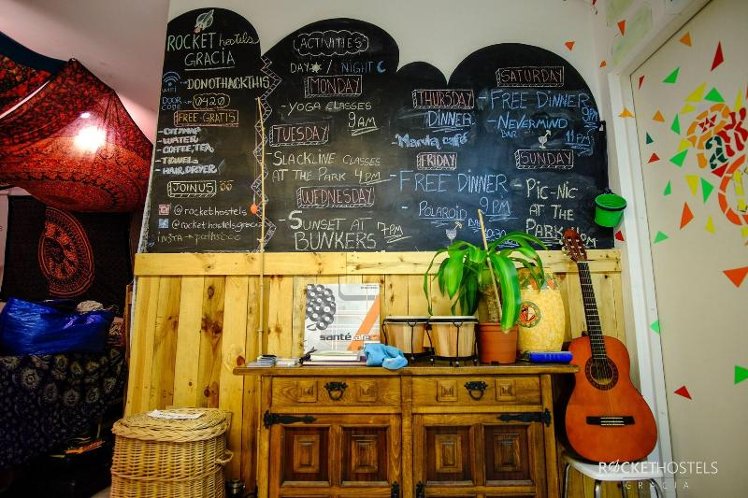 ROCKET hostels
GRACIA
WIFI
-DONOTHACKTHIS
DOOR CODE 0420
FREE-GRATIS
WATER,
COFFEE, TEA,
-TOWELS,
HAIR DRYER
JOIN US
@rockethostels
@rockethostelsgracia
ACTIVITIES
DAY / NIGHT
MONDAY
-YOGA CLASSES
9AM
TUESDAY
-SLACKLINE CLASSES
AT THE PARK 4PM
WEDNESDAY
-SUNSET AT 7PM
BUNKERS
THURSDAY
DINNER
Manda café
FRIDAY
-FREE DINNER
9PM
-POLAROID
SATURDAY
-FREE DINNER
9PM
-NEVERMIND
BAR 11PM
SUNDAY
-PIC-NIC
AT THE
PARK
santé café
ROCKETHOSTELS
GRACIA